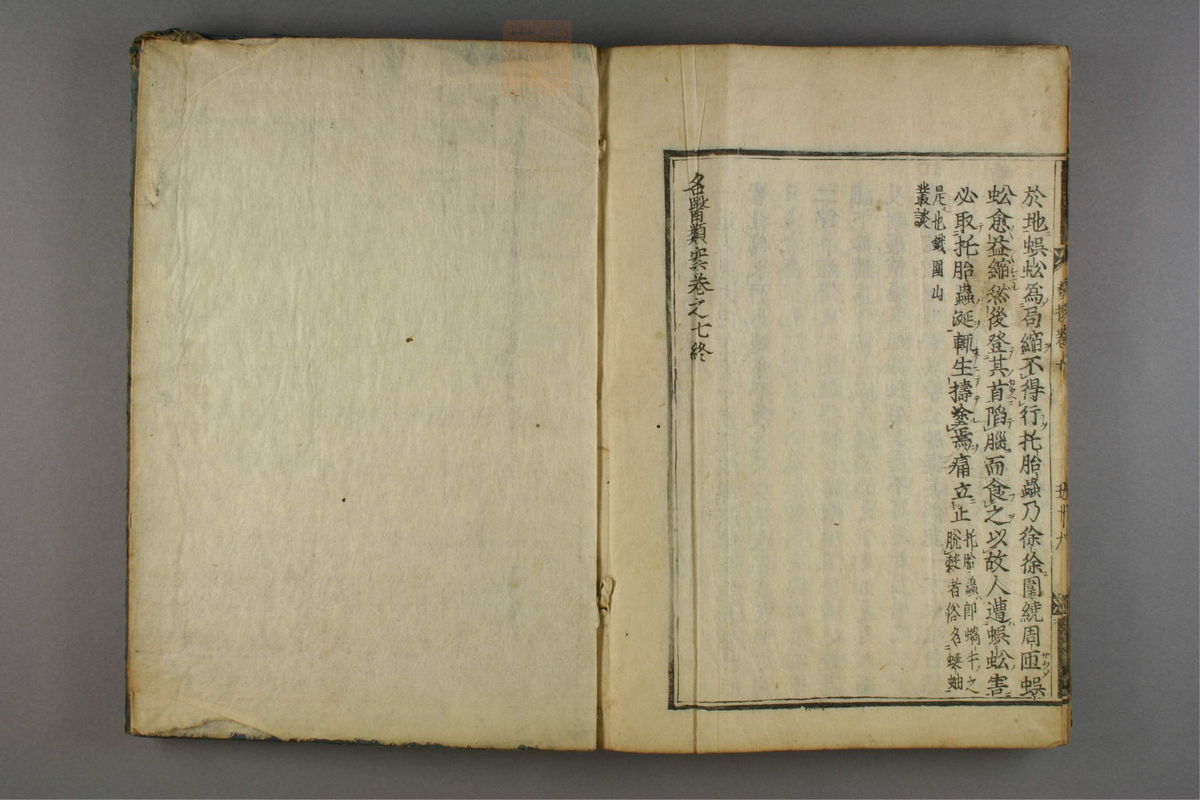 於地蜈蚣爲局縮不得行托胎蟲乃徐徐圍繞周匝蜈
蚣愈益縮然後登其首陷腦而食之以故人遭蜈蚣害
必取托胎蟲涎輒生擣塗焉痛立止
托胎蟲即蝸牛之
脫殼者俗名蜒蚰
是也鐵圍山
叢談
名醫類案卷之七終